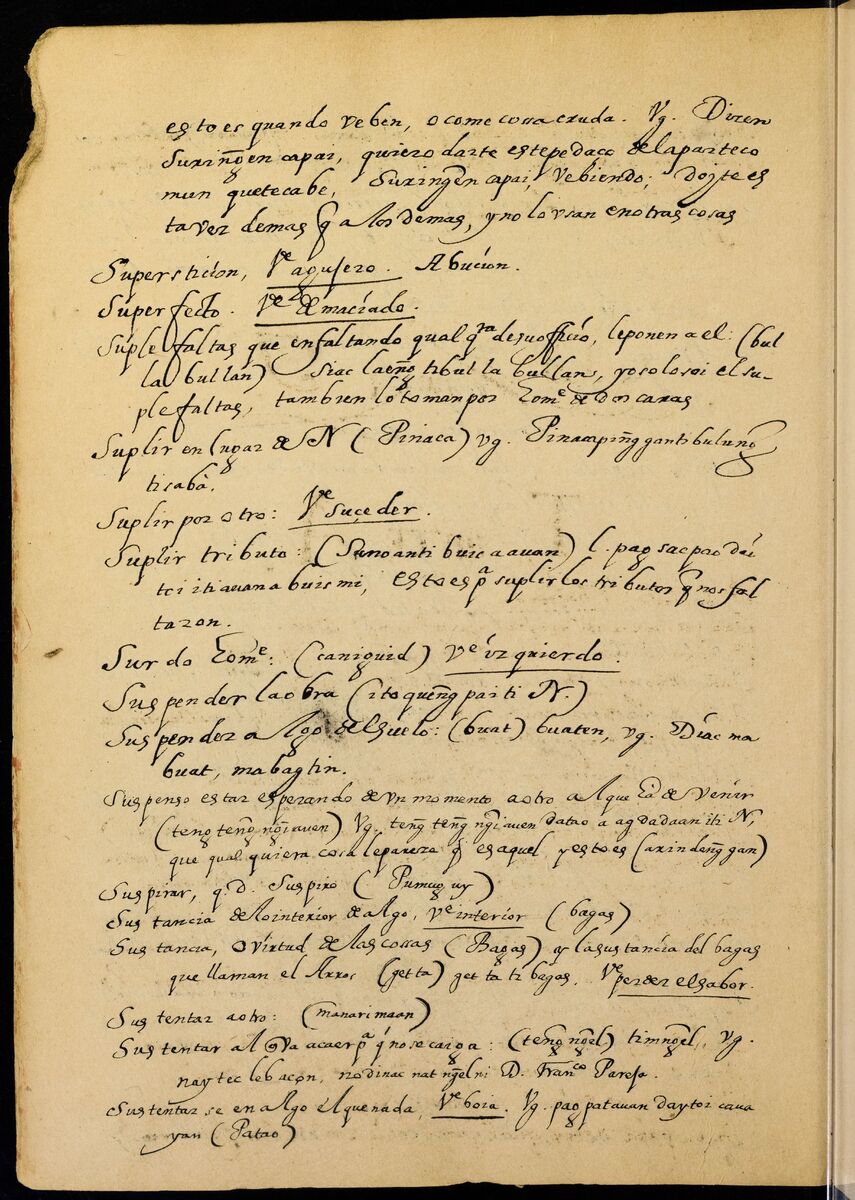 esto es quando veben, o come cossa cruda. Vg. Dizen
suring̃en capai, quiero darte este pedaço de la parte co
mun que te cabe, suring̃en capai, vebiendo; dojte es
ta vez demas q̃ a los demas, y no lo vsan en otras cosas
Supersticion, Vᵉ agujero. Abucion.
Superfecto. Vᵉ demaciado.
Suple faltas que en faltando qual qʳᵃ de su officio, le ponen a el: (bul
la bullan) siac laeng̃ ti bul la bullan, yo solo soi el su-
ple faltas, tambien lo toman por homᵉ de dos caras
Suplir en lugar de N (Pinaca) vg. Pinacaping̃gan ti bulung̃
ti saba.
Suplir por otro: Vᵉ suçeder.
Suplir tributo: (Sunoan ti buis a auan) l. pagsacpao dai
toi iti auan a buis mi, esto es pᵃ suplir los tributos q̃ nos fal
taron.
Surdo homᵉ: (caniguid) Vᵉ izquierdo.
Suspender la obra (ito queng̃ pai ti N.)
Suspender algo del suelo: (buat) buaten, vg. Diac ma
buat, mabagtin.
Suspenso estar esperando de vn momento a otro al que ha de venir
(teng̃ teng̃ ng̃iauen) Vg. teng̃ teng̃ ng̃iauen datao a agdadaan iti N,
que qualquiera cosa le pareze q̃ es aquel, y esto es (arindeng̃gan)
Suspirar, q.D. Suspiro (Pumuguy)
Sustancia de lo interior de algo, Vᵉ interior (bagas)
Sustancia, o virtud de las cossas (Bagas) y la sustancia del bagas
que llaman el Arros (getta) getta ti bagas. Vᵉ perder el sabor.
Sustentar a otro: (manarimaan)
Sustentar al q̃ va a caer pᵃ q̃ no se caiga: (teng̃ng̃el) timng̃el, vg.
naytec lebacon, no dinac natng̃el ni D. Franᶜᵒ Pareja.
Sustentarse en algo el que nada, Vᵉ boia. Vg. pagpatauan daytoi caua
yan (Patao)